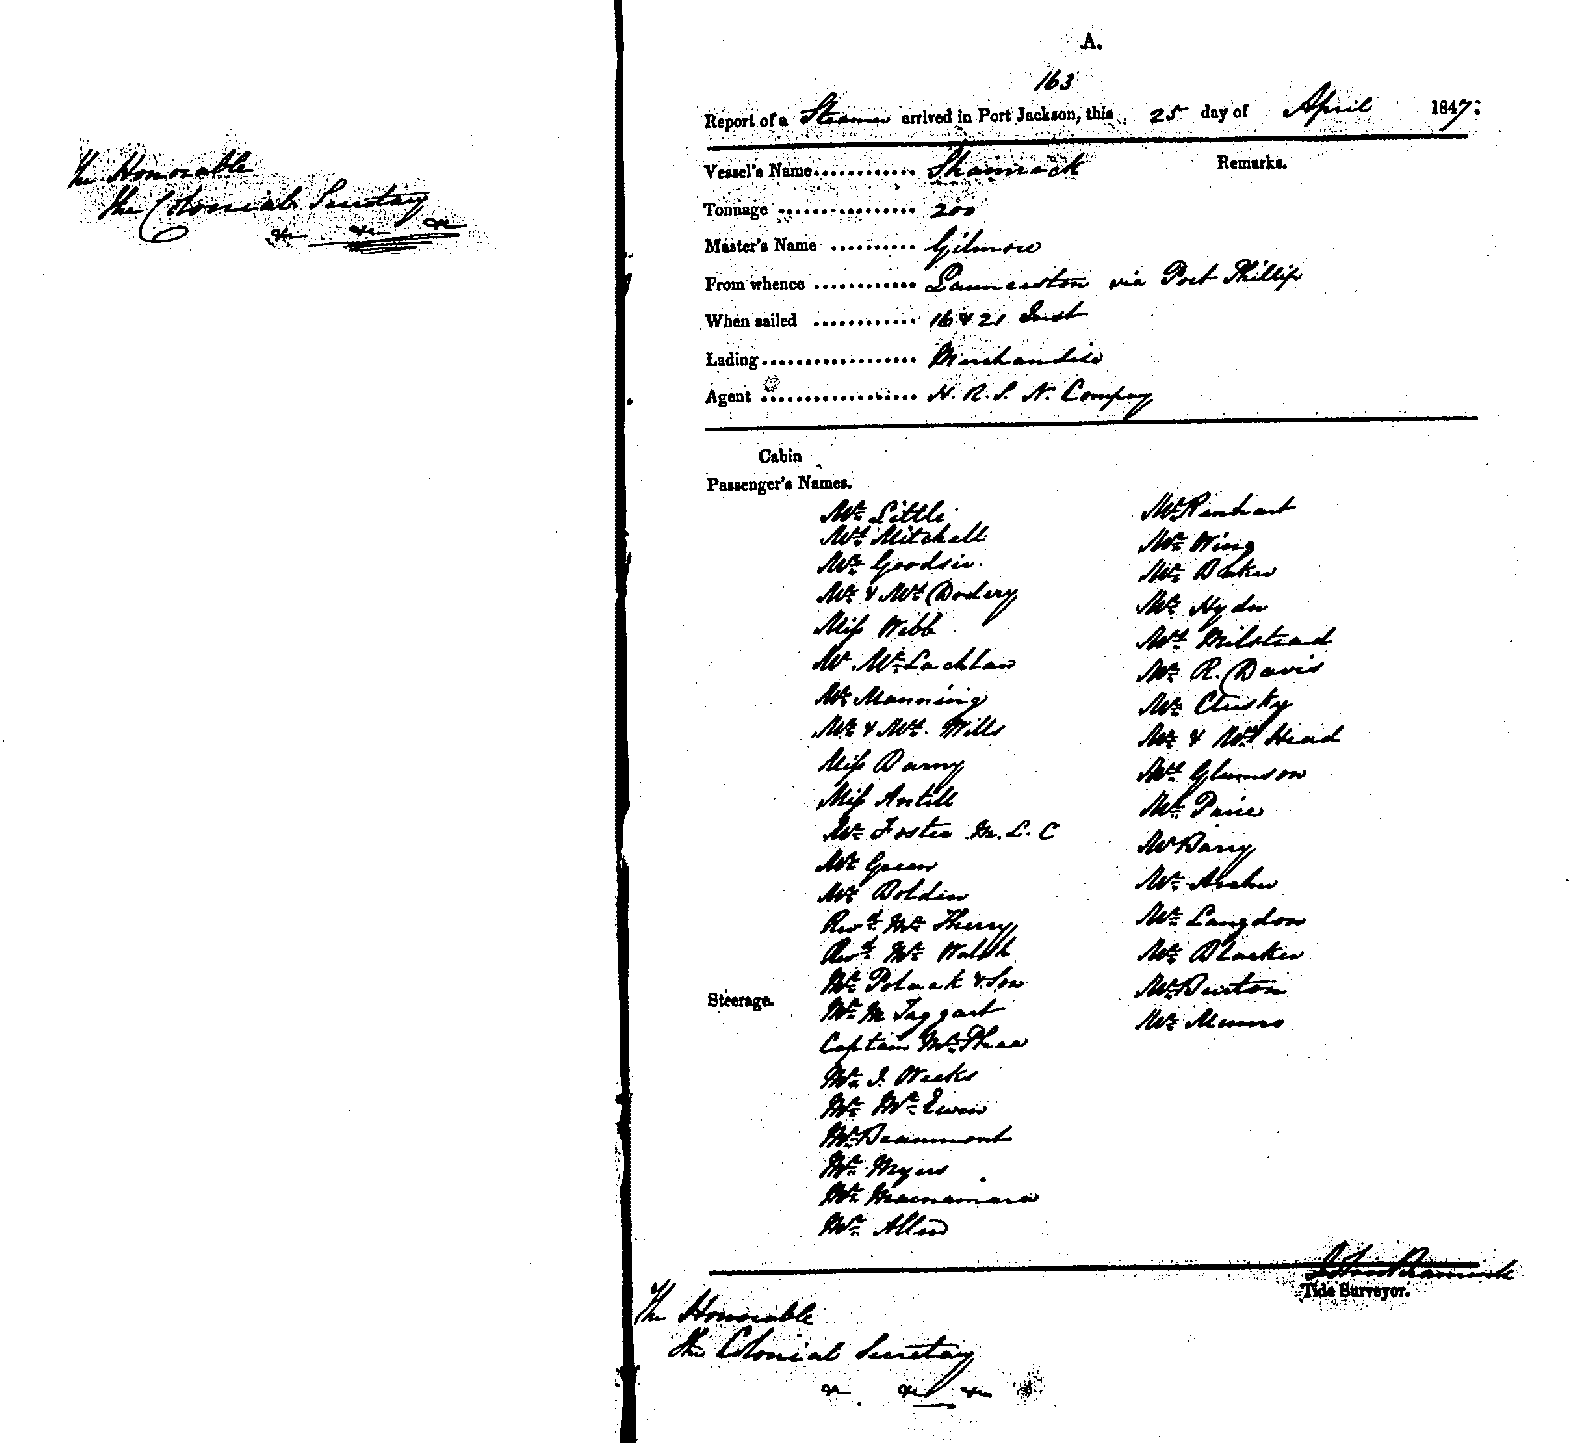 The Honorable
The Colonial Secretary
&c &c &c
A.
163
Report of a Steamer arrived in Port Jackson, this 25 day of April 1847:
Vessel's Name Shamrock Remarks.
Tonnage 200
Master's Name Gilmore
From whence Launceston via Port Phillip
When sailed 16 & 21 Inst
Lading Merchandise
Agent H. R. S. N. Company
Cabin
Passenger's Names.
Mr Little
Mrs Mitchell
Mr Goodsir.
Mr & Mrs Dodery
Miss Webb
Mr McLachlan
Mr Manning
Mr & Mrs. Wills
Miss Barny
Miss Antill
Mr Foster M. L. C
Mr Green
Mr Bolden
Revd Mr Therry
Revd Mr Walsh
Mr Polack & Son
Steerage.
Mr M Taggart
Captain McPhee
Mr J. Weeks
Mr McEwin
Mr Beaumont
Mr Myers
Mr Macnamara
Mr Allen
Mr Rinhart
Mr Wing
Mr Baker
Mr Hyde
Mrs Milstead
Mr R. Davis
Mr Clusky
Mr & Mrs Head
Mrs Glumson
Mr Paine
Mr Barry
Mr Archer
Mr Langdon
Mr Blacker
Mr Burton
Mr Munro
Tide Surveyor.
The Honorable
The Colonial Secretary
&c &c &c